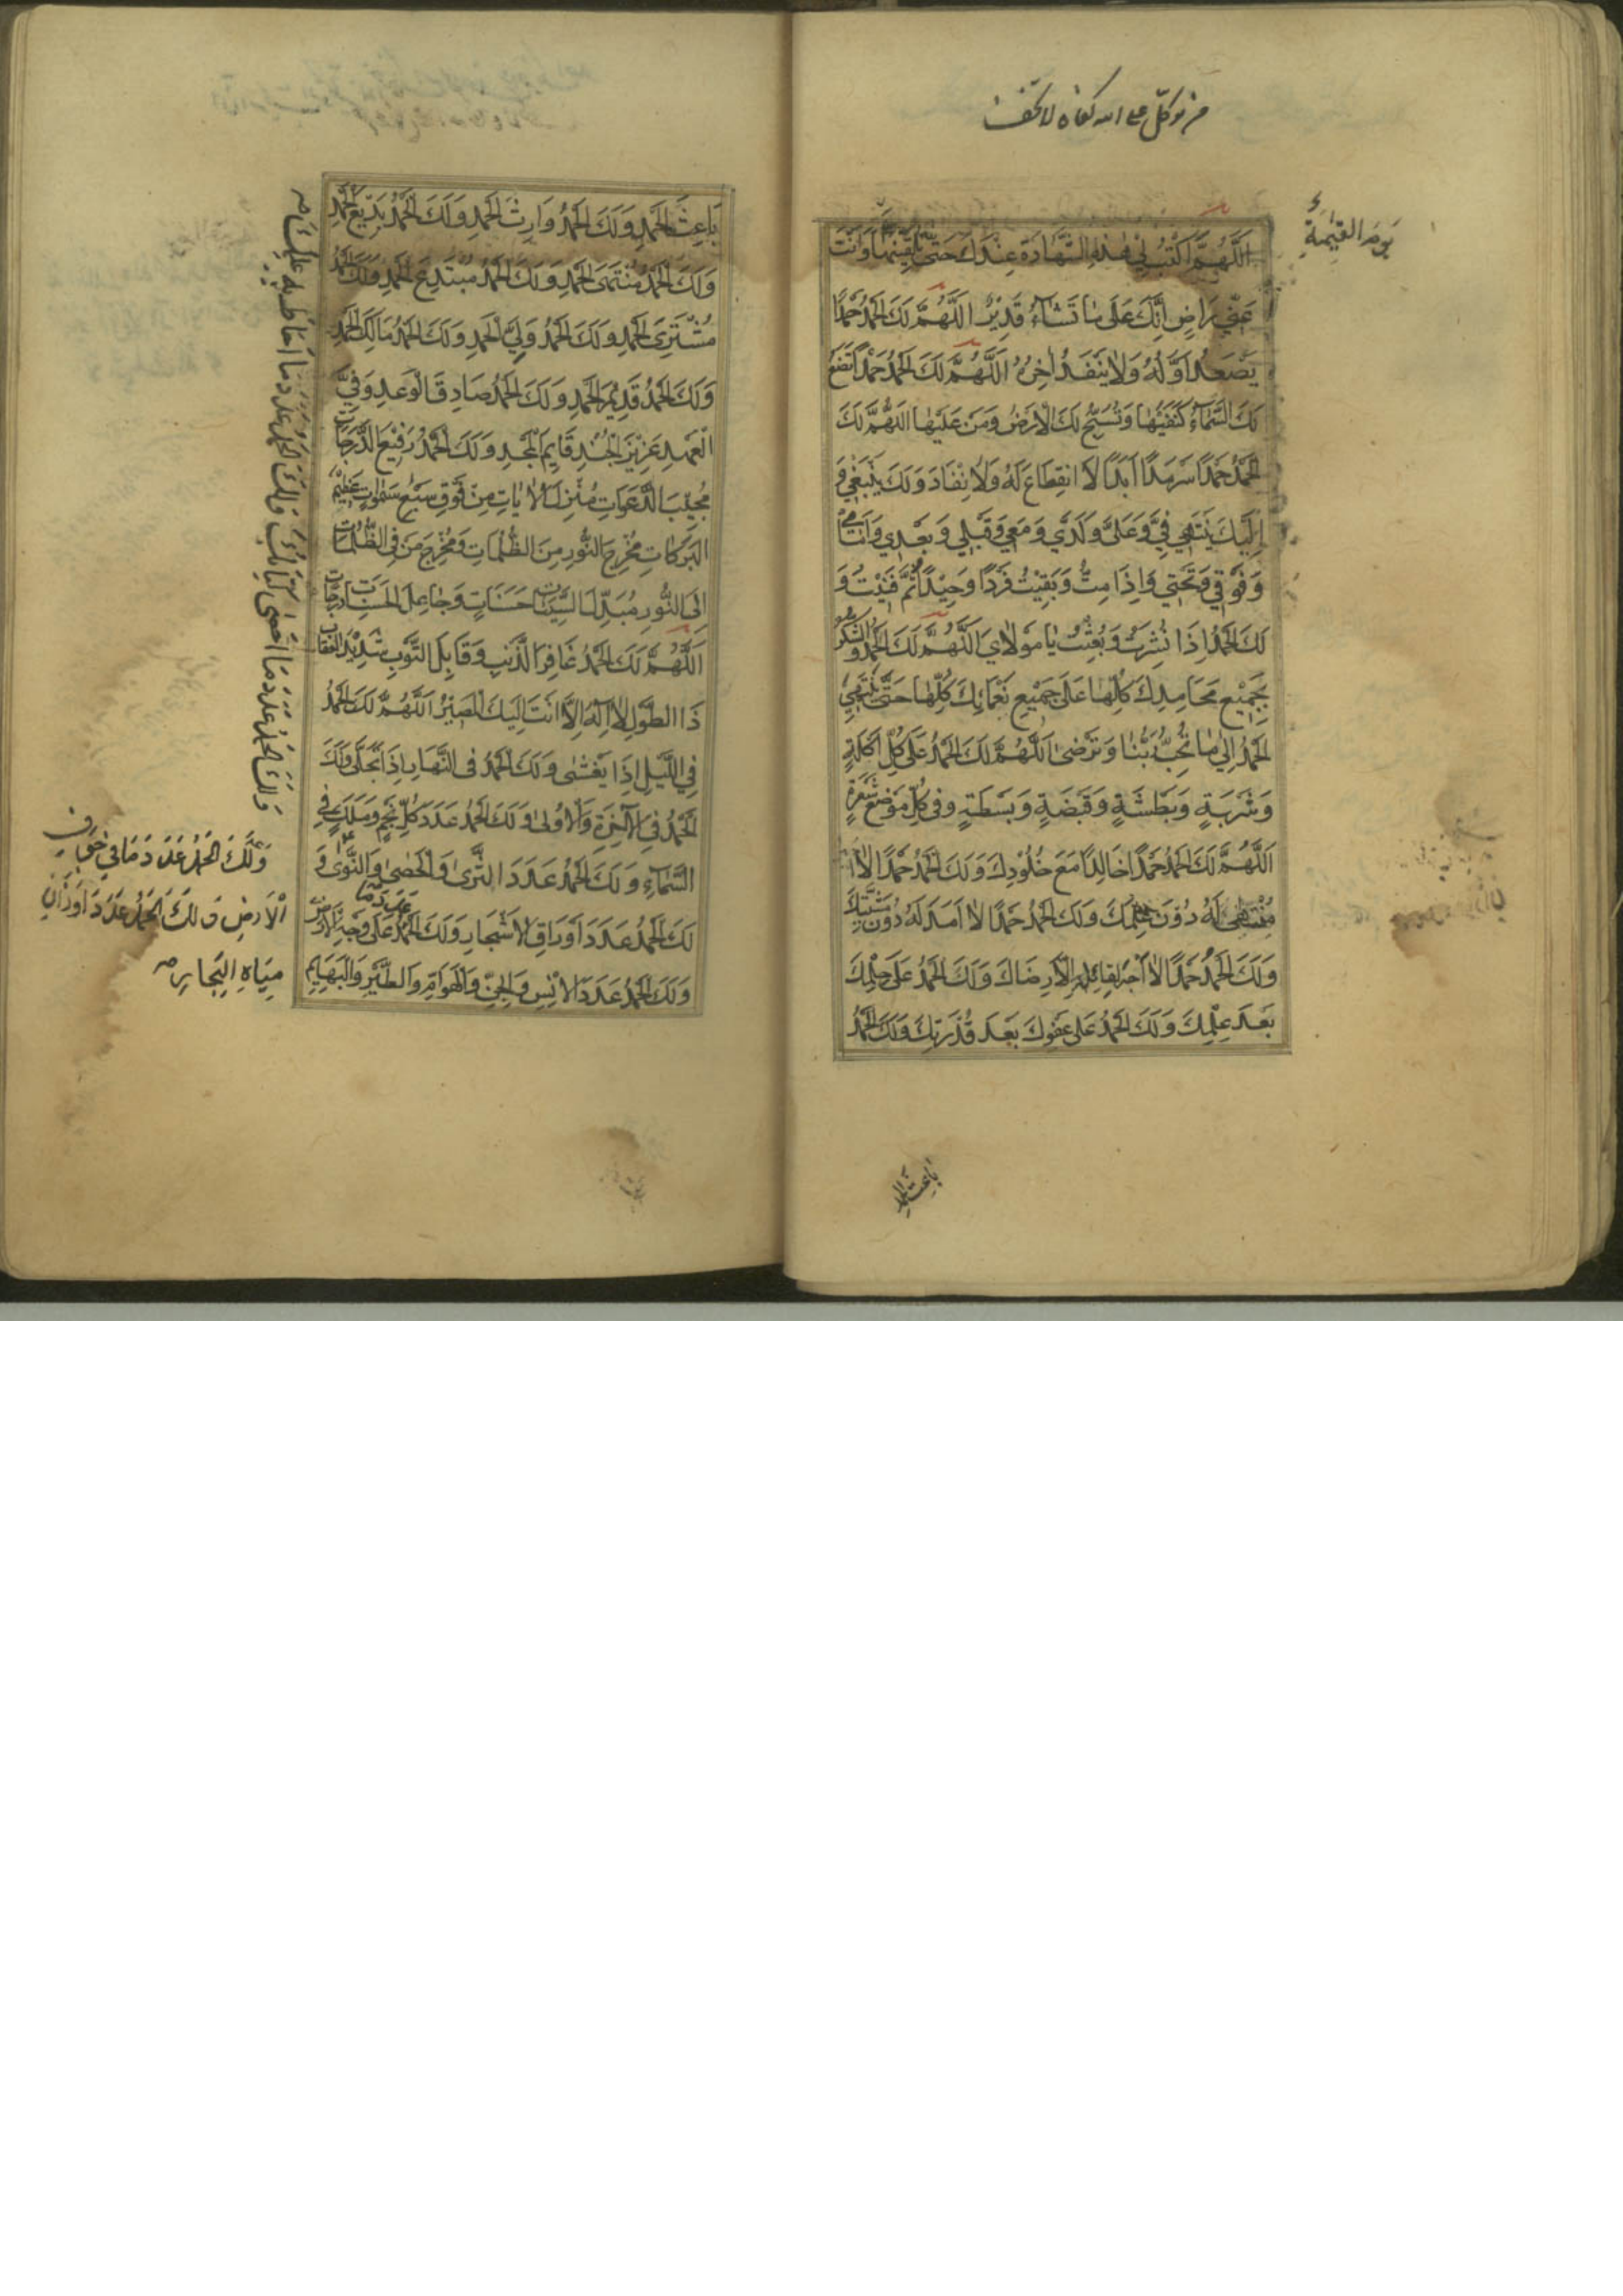 من توکل علی الله کفاه لا تخف
یَومَ القِیٰمَةِ
اَللّٰهُمَّ اكْتُبْ لِي هٰذِهِ الشَّهَادَةَ عِنْدَكَ حَتّىٰ تُلَقِّيَنِيهَا وَاَنْتَ
عَنِّي رَاضٍ اِنَّكَ عَلىٰ مَا تَشَآءُ قَدِيْرٌ اَللّٰهُمَّ لَكَ الْحَمْدُ حَمْدًا
يَصْعَدُ اَوَّلُهُ وَلَا يَنْفَدُ اٰخِرُهُ اَللّٰهُمَّ لَكَ الْحَمْدُ حَمْدًا تَضَعُ
لَكَ السَّمَآءُ كَنَفَيْهَا وَتُسَبِّحُ لَكَ الْاَرْضُ وَمَنْ عَلَيْهَا اَللّٰهُمَّ لَكَ
الْحَمْدُ حَمْدًا سَرْمَدًا اَبَدًا لَا انْقِطَاعَ لَهُ وَلَا نَفَادَ وَلَكَ يَنْبَغِي وَ
اِلَيْكَ يَنْتَهِي فِيَّ وَعَلَيَّ وَلَدَيَّ وَمَعِي وَقَبْلِي وَبَعْدِي وَاَمَامِي
وَفَوْقِي وَتَحْتِي وَاِذَا مِتُّ وَبَقِيْتُ فَرْدًا وَحِيْدًا ثُمَّ فَنَيْتُ وَ
لَكَ الْحَمْدُ اِذَا نُشِرْتُ وَبُعِثْتُ يَا مَوْلَايَ اَللّٰهُمَّ لَكَ الْحَمْدُ وَالشُّكْرُ
بِجَمِيْعِ مَحَامِدِكَ كُلِّهَا عَلىٰ جَمِيْعِ نَعْمَائِكَ كُلِّهَا حَتّىٰ يَنْتَهِيَ
الْحَمْدُ اِلىٰ مَا تُحِبُّ رَبَّنَا وَتَرْضىٰ اَللّٰهُمَّ لَكَ الْحَمْدُ عَلىٰ كُلِّ اَكْلَةٍ
وَشَرْبَةٍ وَبَطْشَةٍ وَقَبْضَةٍ وَبَسْطَةٍ وَفِي كُلِّ مَوْضِعِ شَعْرَةٍ
اَللّٰهُمَّ لَكَ الْحَمْدُ حَمْدًا خَالِدًا مَعَ خُلُوْدِكَ وَلَكَ الْحَمْدُ حَمْدًا لَا
مُنْتَهىٰ لَهُ دُوْنَ عِلْمِكَ وَلَكَ الْحَمْدُ حَمْدًا لَا اَمَدَ لَهُ دُوْنَ مَشِيَّتِكَ
وَلَكَ الْحَمْدُ حَمْدًا لَا اَجْرَ لِقَائِلِهِ اِلَّا رِضَاكَ وَلَكَ الْحَمْدُ عَلىٰ حِلْمِكَ
بَعْدَ عِلْمِكَ وَلَكَ الْحَمْدُ عَلىٰ عَفْوِكَ بَعْدَ قُدْرَتِكَ وَلَكَ الْحَمْدُ
بَاعِثَ الْحَمْدِ
بَاعِثَ الْحَمْدِ وَلَكَ الْحَمْدُ وَارِثَ الْحَمْدِ وَلَكَ الْحَمْدُ بَدِيْعَ الْحَمْدِ
وَلَكَ الْحَمْدُ مُنْتَهَى الْحَمْدِ وَلَكَ الْحَمْدُ مُبْتَدِعَ الْحَمْدِ وَلَكَ الْحَمْدُ
مُشْتَرِيَ الْحَمْدِ وَلَكَ الْحَمْدُ وَلِيَّ الْحَمْدِ وَلَكَ الْحَمْدُ مَالِكَ الْحَمْدِ
وَلَكَ الْحَمْدُ قَدِيْمَ الْحَمْدِ وَلَكَ الْحَمْدُ صَادِقَ الْوَعْدِ وَفِيَّ
الْعَهْدِ عَزِيْزَ الْجُنْدِ قَايِمَ الْمَجْدِ وَلَكَ الْحَمْدُ رَفِيْعَ الدَّرَجَاتِ
مُجِيْبَ الدَّعَوَاتِ مُنْزِلَ الْاٰيَاتِ مِنْ فَوْقِ سَبْعِ سَمٰوَاتٍ عَظِيْمَ
الْبَرَكَاتِ مُخْرِجَ النُّوْرِ مِنَ الظُّلُمَاتِ وَمُخْرِجَ مَنْ فِي الظُّلُمَاتِ
اِلَى النُّوْرِ مُبَدِّلَ السَّيِّئَاتِ حَسَنَاتٍ وَجَاعِلَ الْحَسَنَاتِ دَرَجَاتٍ
اَللّٰهُمَّ لَكَ الْحَمْدُ غَافِرَ الذَّنْبِ وَقَابِلَ التَّوْبِ شَدِيْدَ الْعِقَابِ
ذَا الطَّوْلِ لَا اِلٰهَ اِلَّا اَنْتَ اِلَيْكَ الْمَصِيْرُ اَللّٰهُمَّ لَكَ الْحَمْدُ
فِي اللَّيْلِ اِذَا يَغْشىٰ وَلَكَ الْحَمْدُ فِي النَّهَارِ اِذَا تَجَلّىٰ وَلَكَ
الْحَمْدُ فِي الْاٰخِرَةِ وَالْاُوْلىٰ وَلَكَ الْحَمْدُ عَدَدَ كُلِّ نَجْمٍ وَمَلَكٍ فِي
السَّمَآءِ وَلَكَ الْحَمْدُ عَدَدَ الثَّرىٰ وَالْحَصىٰ وَالنَّوىٰ وَ
لَكَ الْحَمْدُ عَدَدَ اَوْرَاقِ الْاَشْجَارِ وَلَكَ الْحَمْدُ عَدَدَ مَا عَلىٰ وَجْهِ الْاَرْضِ
وَلَكَ الْحَمْدُ عَدَدَ الْاِنْسِ وَالْجِنِّ وَالْهَوَامِّ وَالطَّيْرِ وَالْبَهَايِمِ
وَلَكَ الْحَمْدُ عَدَدَ مَا اَحْصىٰ كِتَابُكَ وَلَكَ الْحَمْدُ عَدَدَ مَا اَحَاطَ بِهِ عِلْمُكَ
وَلَكَ الْحَمْدُ عَدَدَ مَا فِي جَوْفِ
الْاَرْضِ وَلَكَ الْحَمْدُ عَدَدَ اَوْزَانِ
مِيَاهِ الْبِحَارِ